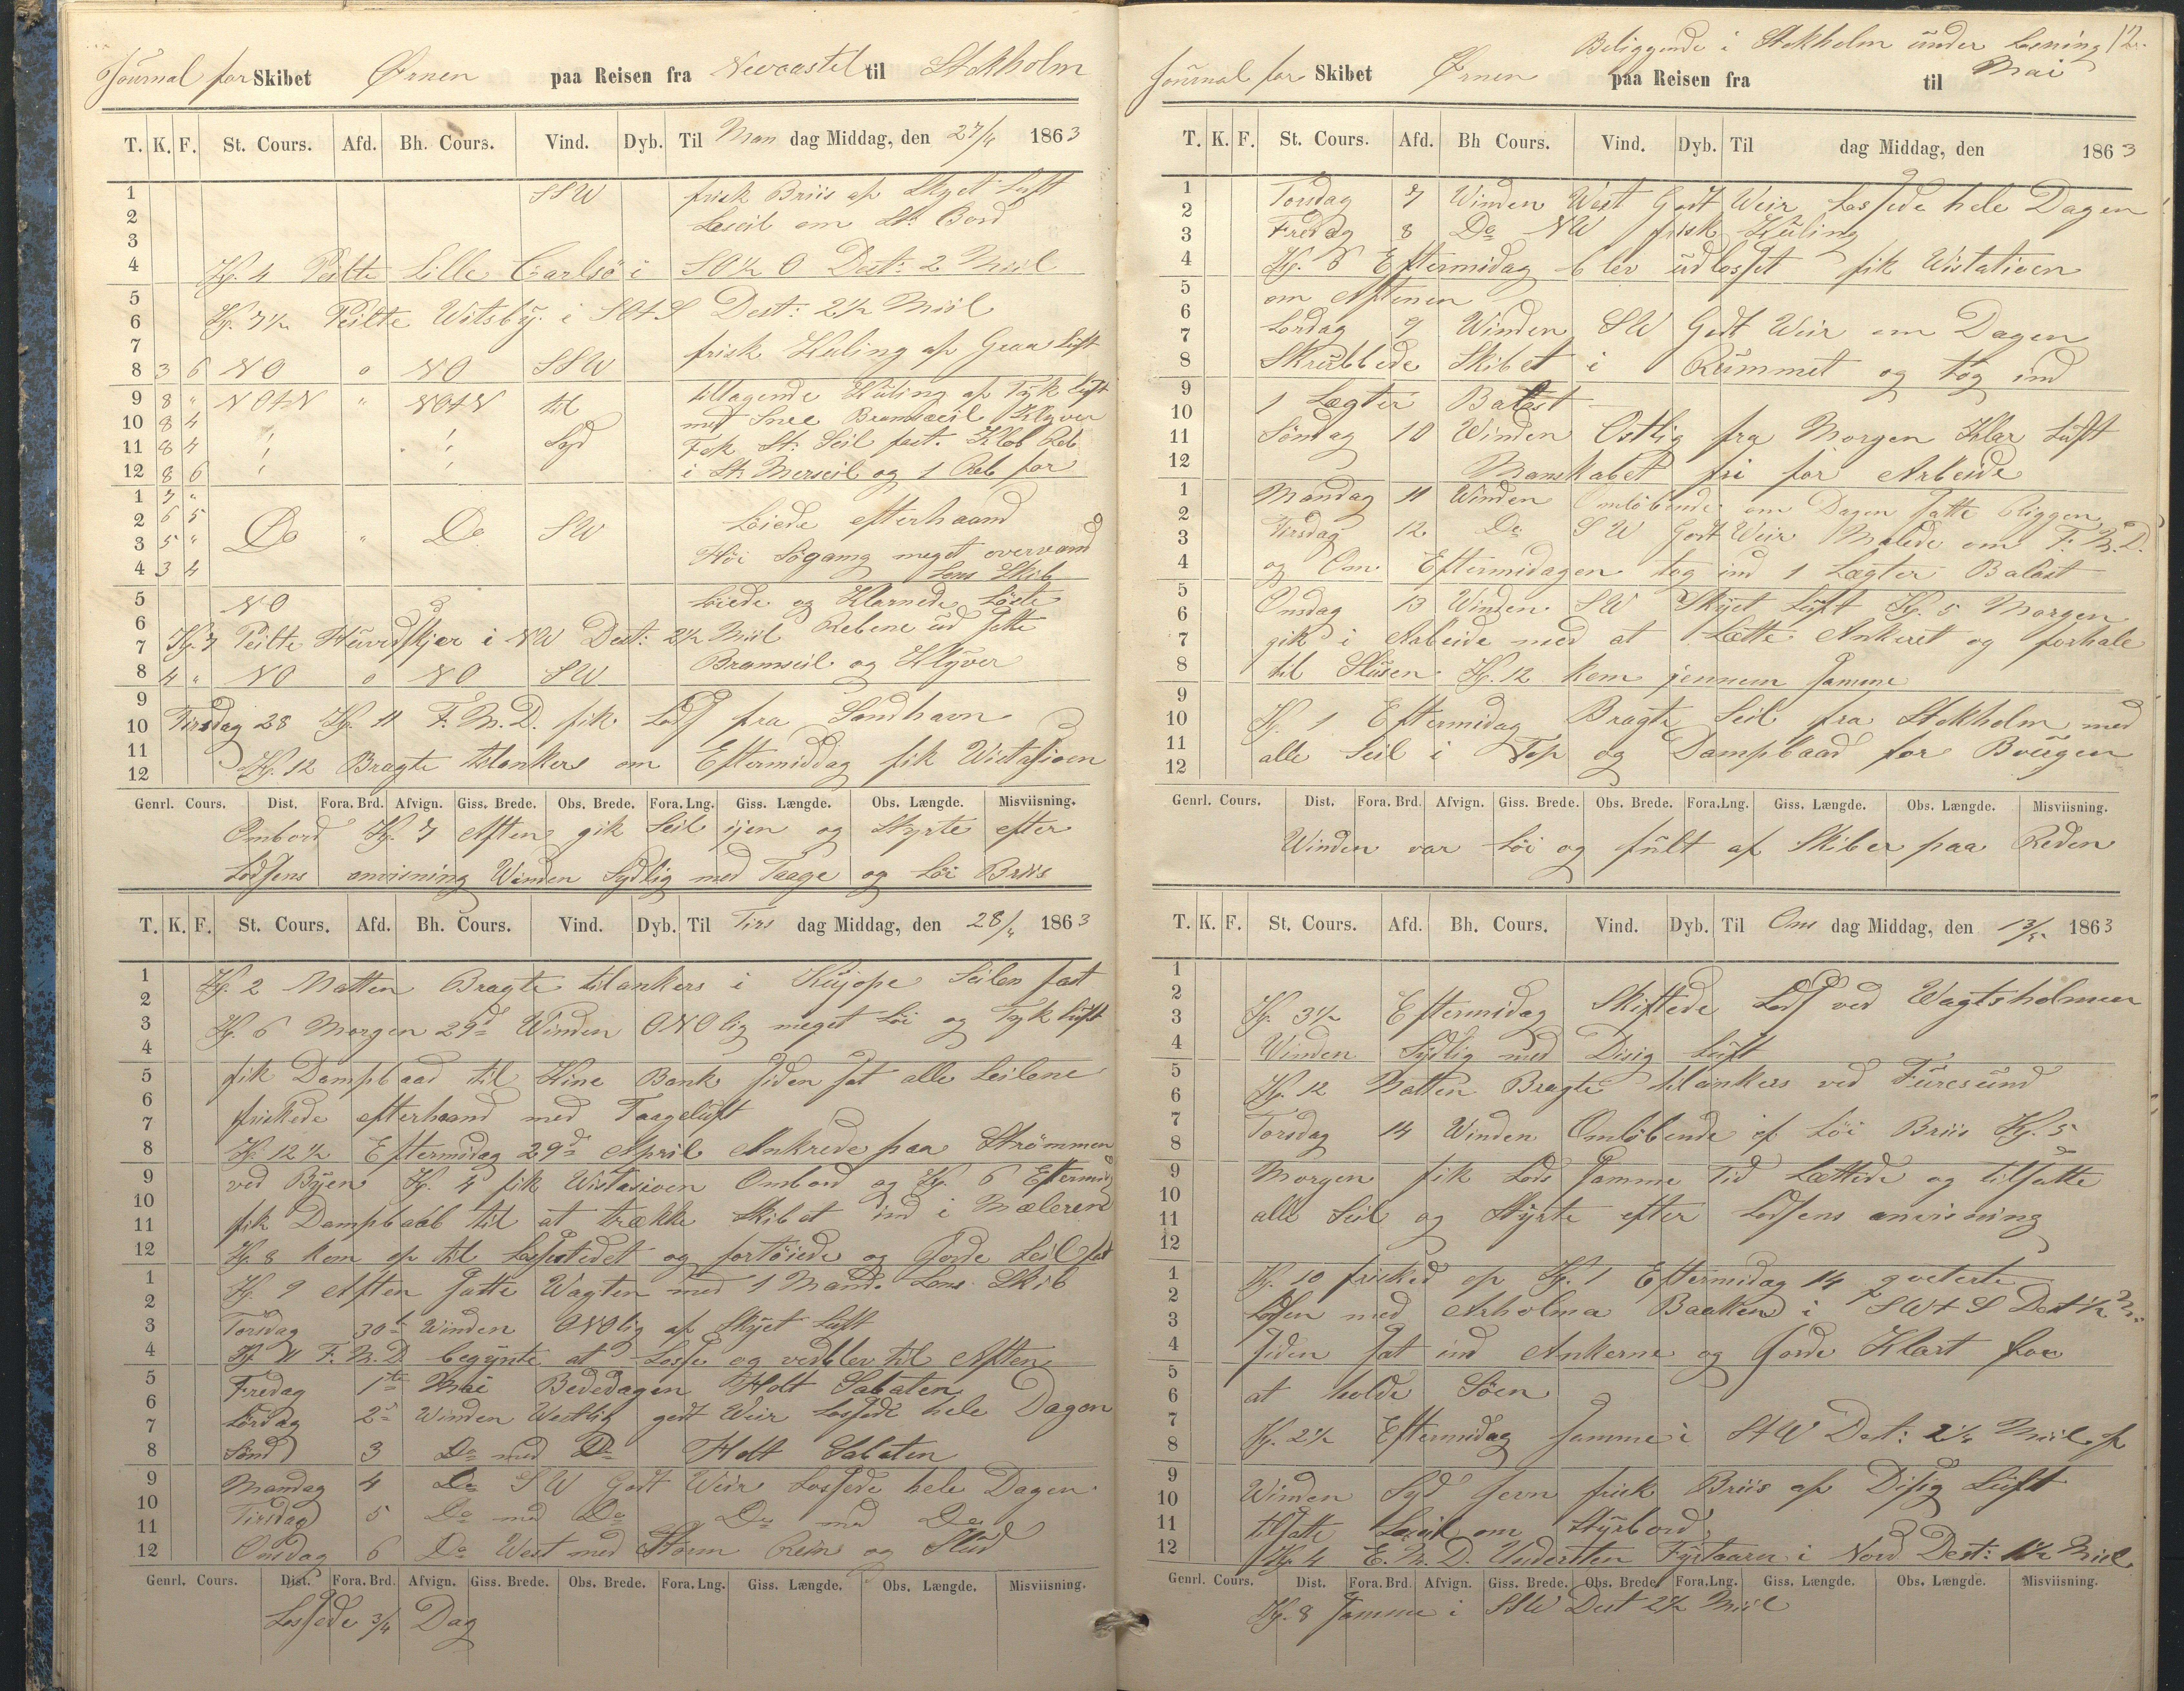 Journal for Skibet Ørnen paa Reisen fra Newcastel til Stokholm
T. K. F. St. Cours. Afd. Bh. Cours. Vind. Dyb. Til Man dag Middag, den 27/4 1863
1 SSW frisk Briis af Skyet Luft
2 Leseil om St: Bord
3
4 Kl. 4 Peilte Lille Carlsö i SO½O Dest: 2 Miil
5
6 Kl. 7½ Peilte Witsby i SOtS Dest: 2½ Miil
7 frisk Kuling af Graa Luft
8 3 6 NO o NO SSW
9 8 " NOtN " NOtN til tiltagende Kuling af Tyk Luft
10 8 4 med Snee Bramseil Klyver
11 8 4 Syd Fok St: Seil fast. Klob Reb
12 8 6 i St: Merseil og 1 Reb for
1 7 "
2 6 5 Do " Do SW Löiede efterhaand
3 5 " Höi Sögang meget overvand
4 3 4 Lens Skib
5 NO Löiede og Klarnede Löste
6 Rebene ud Satte
7 Kl. 7 Peilte Huvudskjer i NW Dest: 2½ Miil
8 4 " NO o NO SW Bramseil og Klyver
9
10 Tirsdag 28 Kl. 11 F. M. D. fik Lods fra Sandhavn
11
12 Kl. 12 Bragte tilankers om Eftermiddag fik Wistasioen
Genrl. Cours. Dist. Fora. Brd. Afvign. Giss. Brede. Obs. Brede. Fora. Lng. Giss. Længde. Obs. Længde. Misviisning.
Ombord Kl. 7 Aften gik Seil ijen og Styrte efter
Lodsens anvisning Winden Sydlig med Taage og Löi Briis
T. K. F. St. Cours. Afd. Bh. Cours. Vind. Dyb. Til Tirs dag Middag, den 28/4 1863
1 Kl. 2 Natten Bragte tilankers i Seilen fast
2
3 Kl. 6 Morgen 29d Winden ONOlig meget Löi og Tyk Luft
4
5 fik Dampbaad til Kine Bank Siden Sat alle Seilene
6 friskede efterhaand med Taageluft
7
8 Kl. 12½ Eftermidag 29d April Ankrede paa Strömmen
9 ved Byen Kl. 4 fik Wistasioen Ombord og Kl. 6 Eftermid
10 fik Dampbaad til at trække Skibet ind i Mæleren
11
12 Kl. 8 kom op til Lossestedet og fortöiede og Gorde Seil fast
1 Kl. 9 Aften Satte Wagten med 1 Mand. Lens Skib
2
3 Torsdag 30t Winden ONOlig af Skyet Luft
4 Kl. 11 F. M. D. begynte at Losse og vedblev til Aften
5 Fredag 1te Mai Bededagen Holt Sabaten
6 Lördag 2d Winden Westlig godt Weir Lossede hele Dagen
7
8 Sönd 3 Do med Do Holt Sabaten
9 Mandag 4 Do SW Godt Weir Lossede hele Dagen
10
11 Tirsdag 5 Do med Do Do med Do
12 Onsdag 6 Do West med Storm Rein og Slud
Genrl. Cours. Dist. Fora. Brd. Afvign. Giss. Brede. Obs. Brede. Fora. Lng. Giss. Længde. Obs. Længde. Misviisning.
Lossede 3/4 Dag
Beliggende i Stokholm under Losning 12.
Journal for Skibet Ørnen paa Reisen fra til Mai
T. K. F. St. Cours. Afd. Bh Cours. Vind. Dyb. Til dag Middag, den 1863
1 Torsdag 7 Winden West Godt Weir Lossede hele Dagen
2 Fredag 8 Do NW frisk Kuling
3
4 Kl. 6 Eftermidag blev udlosset fik Wistatioen
5 om Aftenen
6 Lördag 9 Winden SW Godt Weir om Dagen
7
8 Skrubbede Skibet i Rummet og tog ind
9
10 1 Lægter Balast
11 Söndag 10 Winden Ostlig fra Morgen Klar Luft
12 Manskabet fri for Arbeide
1 Mandag 11 Winden Omlöbende om Dagen Satte
2 Tirsdag 12 Do SW Godt Weir Malede om F: M. D.
3
4 og Om Eftermidagen tog ind 1 Lægter Balast
5
6 Onsdag 13 Winden SW Skyet Luft Kl. 5 Morgen
7 gik i Arbeide med at Lætte Ankeret og forhale
8 til Slusen Kl. 12 kom jennem Samme
9
10 Kl. 1 Eftermidag Bragte Seil fra Stokholm med
11 alle Seil i Top og Dampbaad for Bougen
12
Genrl. Cours. Dist. Fora. Brd. Afvign. Giss. Brede. Obs. Brede. Fora.Lng. Giss. Længde. Obs. Længde. Misviisning.
Winden var Löi og fült af Skiber paa Reden
T. K. F. St. Cours. Afd. Bh. Cours. Vind. Dyb. Til Ons dag Middag, den 13/5 1863
1
2
3 Kl. 3½ Eftermidag Skiftede Lods ved Wagtsholmen
4 Winden Sydlig med Disig Luft
5
6 Kl. 12 Natten Bragte tilankers ved Furesund
7 Torsdag 14 Winden Omlöbende af Löi Briis Kl. 5
8
9 Morgen fik Lods Samme Tid Lættede og tilsatte
10
11 alle Seil og Styrte efter Lodsens anvisning
12
1 Kl. 10 frisked op Kl. 1 Eftermidag 14 qveterte
2
3 Losen med Arholma Baaken i SWtS Dest ½ M.
4 Siden Sat ind Ankerne og Gorde Klart for
5
6 at holde Söen
7
8 Kl. 2½ Eftermidag Samme i StW Dest: 2½ Miil af
9
10 Winden Syd Jevn frisk Briis af Disig Luft
11 tilsatte Leseil om Styrbord
12 Kl. 4 E. M. D. Understen Fyrtaarn i Nord Dest: 1½ Miil
Genrl. Cours. Dist. Fora. Brd. Afvign. Giss. Brede. Obs. Brede. Fora.Lng. Giss. Længde. Obs. Længde. Misviisning.
Kl. 8 Samme i SSW Dest 2½ Miil